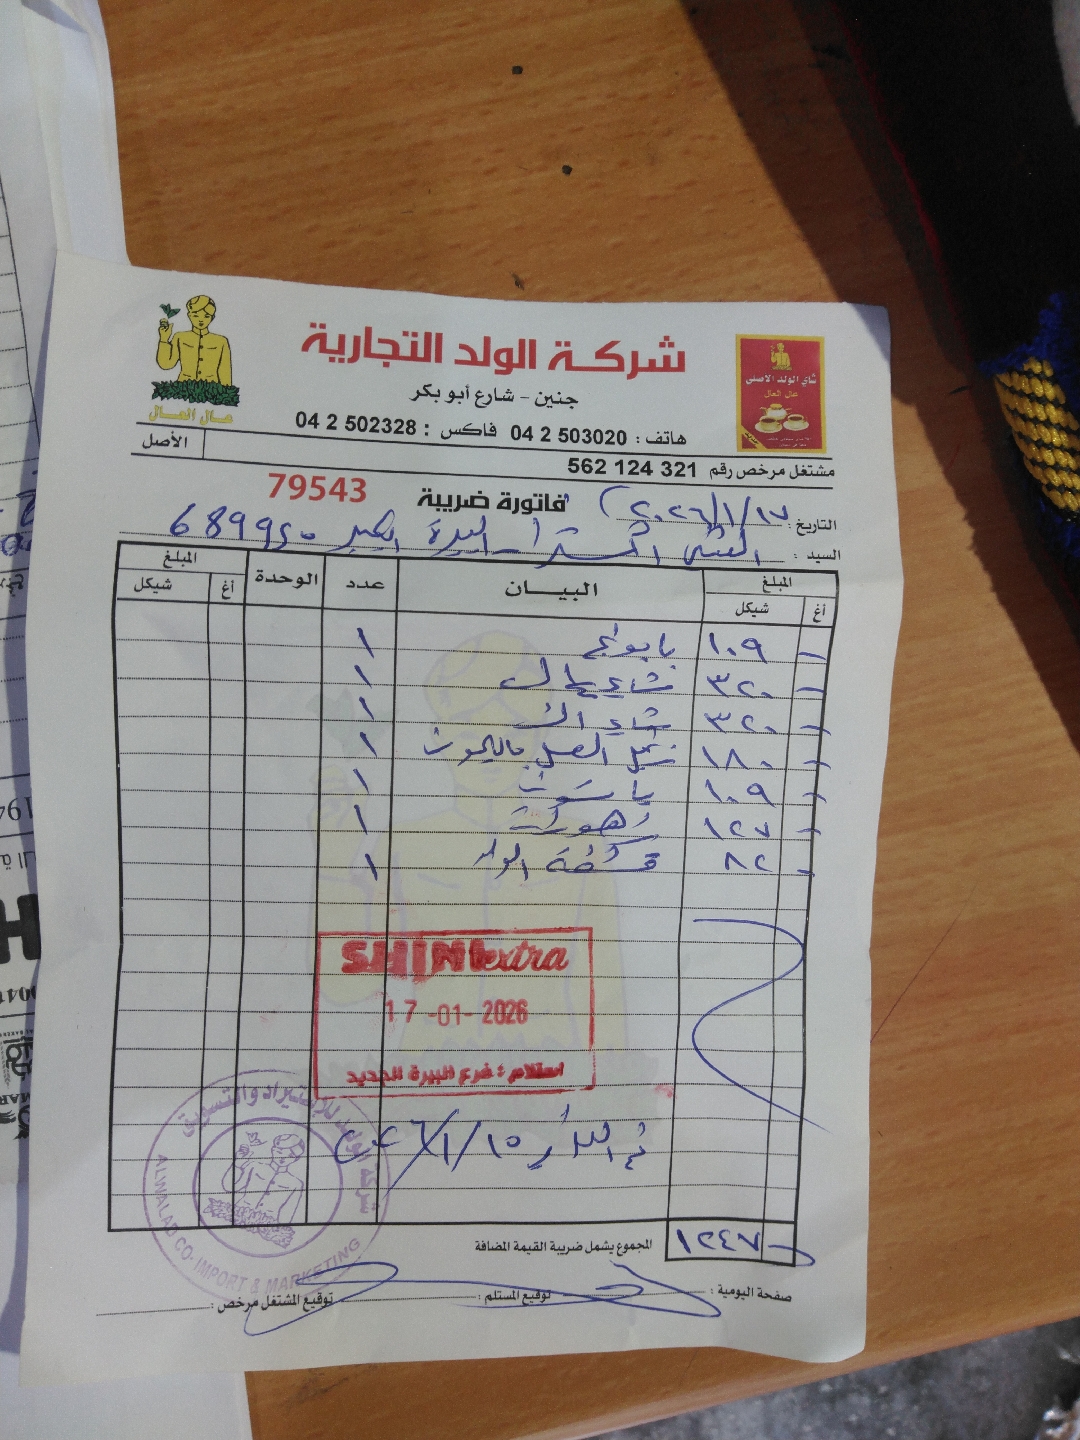 شركة الولد التجارية
جنين - شارع أبو بكر
هاتف : 04 2 503020 فاكس : 04 2 502328
عال العال
شاي الولد الأصلي
عال العال
الأصل
مشتغل مرخص رقم 321 124 562
فاتورة ضريبة 79543
التاريخ : ٢٠٢٦/١/١٧
السيد : البيرة 689950
المبلغ البيان عدد الوحدة المبلغ
أغ شيكل أغ شيكل
١٠٩ بابونج ١
٣٢٠ شاي ١
٣٢٠ شاي ١
١٨٠ العسل بالليمون ١
١٠٩ ١
١٢٧ زهورات ١
٨٢ الولد ١
SHINI extra
17-01-2026
استلام : فرع البيرة الجديد
٢٠٢٦/١/١٥
شركة الولد للإستيراد والتسويق
ALWALAD CO. IMPORT & MARKETING
المجموع يشمل ضريبة القيمة المضافة ١٢٤٧
صفحة اليومية : توقيع المستلم : توقيع المشتغل مرخص :